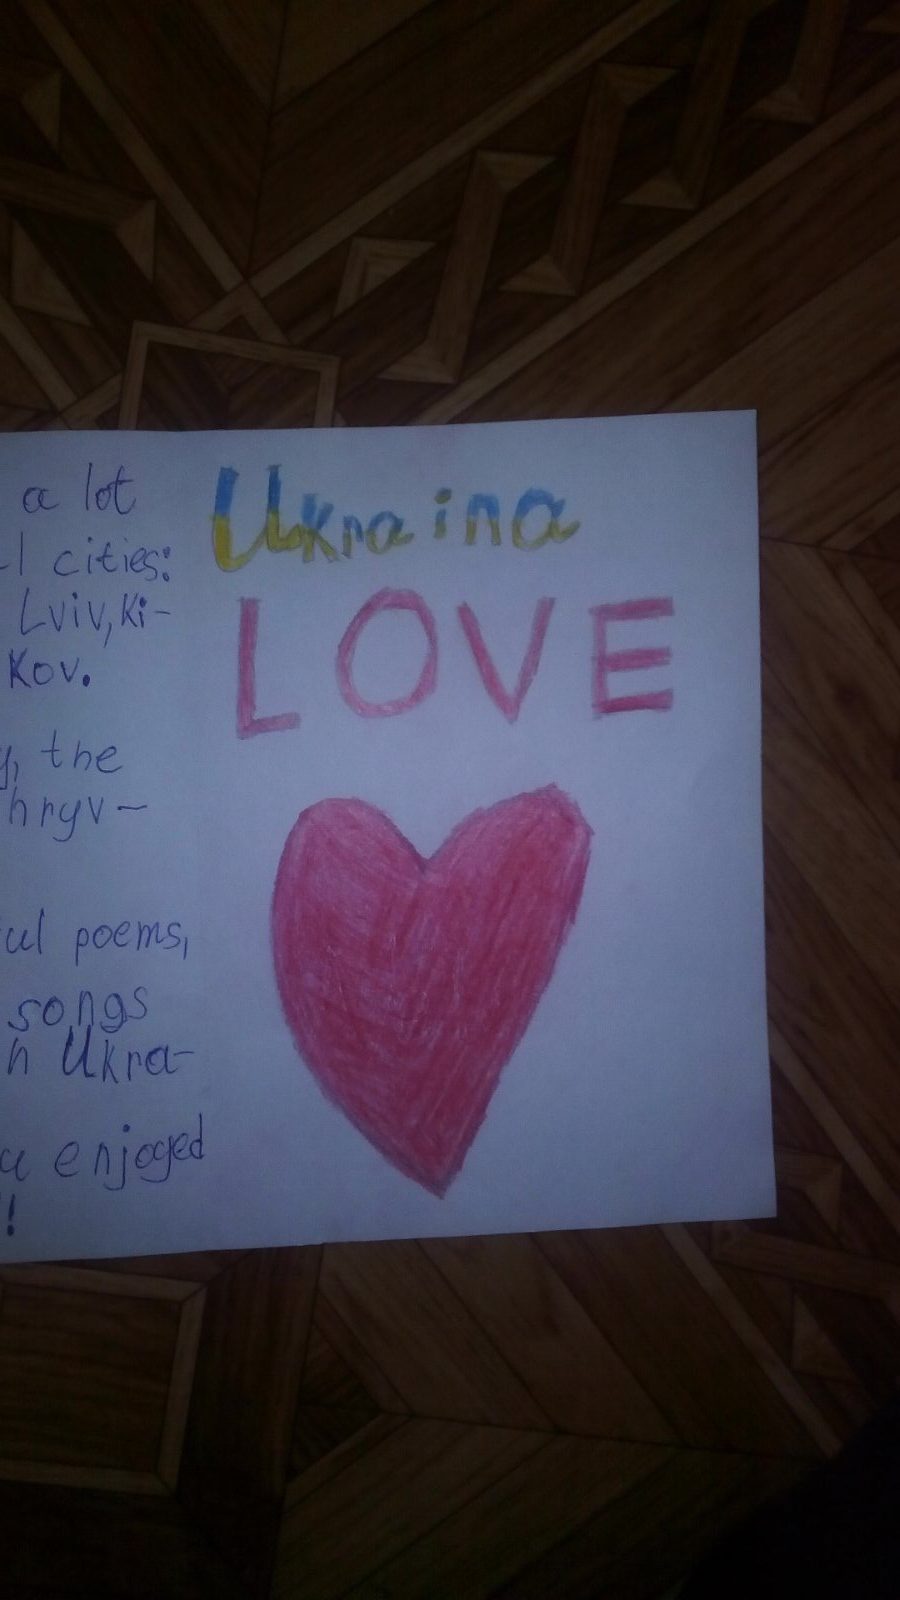 a lot
l cities:
Lviv, Ki-
kov.
, the
hryv-
ul poems,
songs
n Ukra-
enjoyed
!
Ukraina
LOVE